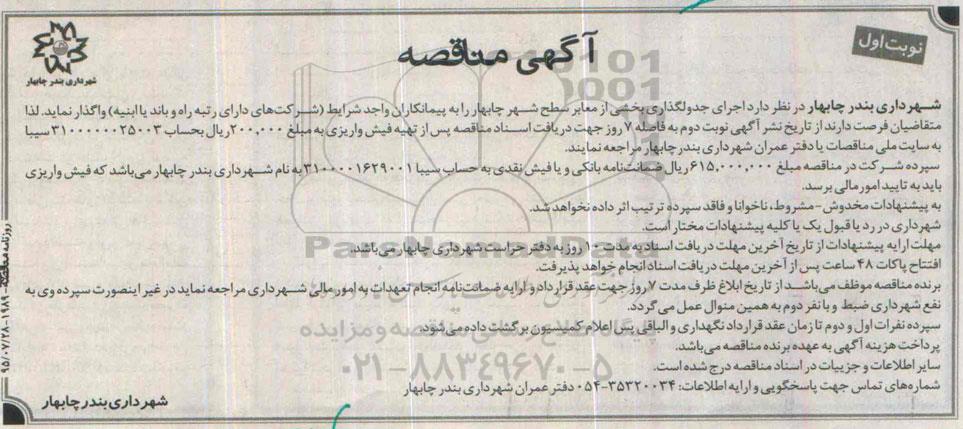 نوبت اول
آگهی مناقصه
شهرداری بندر چابهار
شهرداری بندر چابهار در نظر دارد اجرای جدولگذاری بخشی از معابر سطح شهر چابهار را به پیمانکاران واجد شرایط (شرکت‌های دارای رتبه راه و باند یا ابنیه) واگذار نماید. لذا
متقاضیان فرصت دارند از تاریخ نشر آگهی نوبت دوم به فاصله ۷ روز جهت دریافت اسناد مناقصه پس از تهیه فیش واریزی به مبلغ ۲۰۰,۰۰۰ ریال بحساب ۳۱۰۰۰۰۰۰۲۵۰۰۳ سیبا
به سایت ملی مناقصات یا دفتر عمران شهرداری بندر چابهار مراجعه نمایند.
سپرده شرکت در مناقصه مبلغ ۶۱۵,۰۰۰,۰۰۰ ریال ضمانت‌نامه بانکی و یا فیش نقدی به حساب سیبا ۳۱۰۰۰۰۱۶۲۹۰۰۱ به نام شهرداری بندر چابهار می‌باشد که فیش واریزی
باید به تایید امور مالی برسد.
به پیشنهادات مخدوش -مشروط، ناخوانا و فاقد سپرده ترتیب اثر داده نخواهد شد.
شهرداری در رد یا قبول یک یا کلیه پیشنهادات مختار است.
مهلت ارایه پیشنهادات از تاریخ آخرین مهلت دریافت اسناد به مدت ۱۰ روز به دفتر حراست شهرداری چابهار می‌باشد.
افتتاح پاکات ۴۸ ساعت پس از آخرین مهلت دریافت اسناد انجام خواهد پذیرفت.
برنده مناقصه موظف می‌باشد از تاریخ ابلاغ ظرف مدت ۷ روز جهت عقد قرارداد و ارایه ضمانت‌نامه انجام تعهدات به امور مالی شهرداری مراجعه نماید در غیر اینصورت سپرده وی به
نفع شهرداری ضبط و با نفر دوم به همین منوال عمل می‌گردد.
سپرده نفرات اول و دوم تا زمان عقد قرارداد نگهداری و الباقی پس اعلام کمیسیون برگشت داده می‌شود.
پرداخت هزینه آگهی به عهده برنده مناقصه می‌باشد.
سایر اطلاعات و جزییات در اسناد مناقصه درج شده است.
شماره‌های تماس جهت پاسخگویی و ارایه اطلاعات: ۳۵۳۲۰۰۳۴-۰۵۴ دفتر عمران شهرداری بندر چابهار
شهرداری بندر چابهار
۰۲۱-۸۸۳۴۹۶۷۰-۵
۹۵/۰۷/۲۸-۱۹۸۹